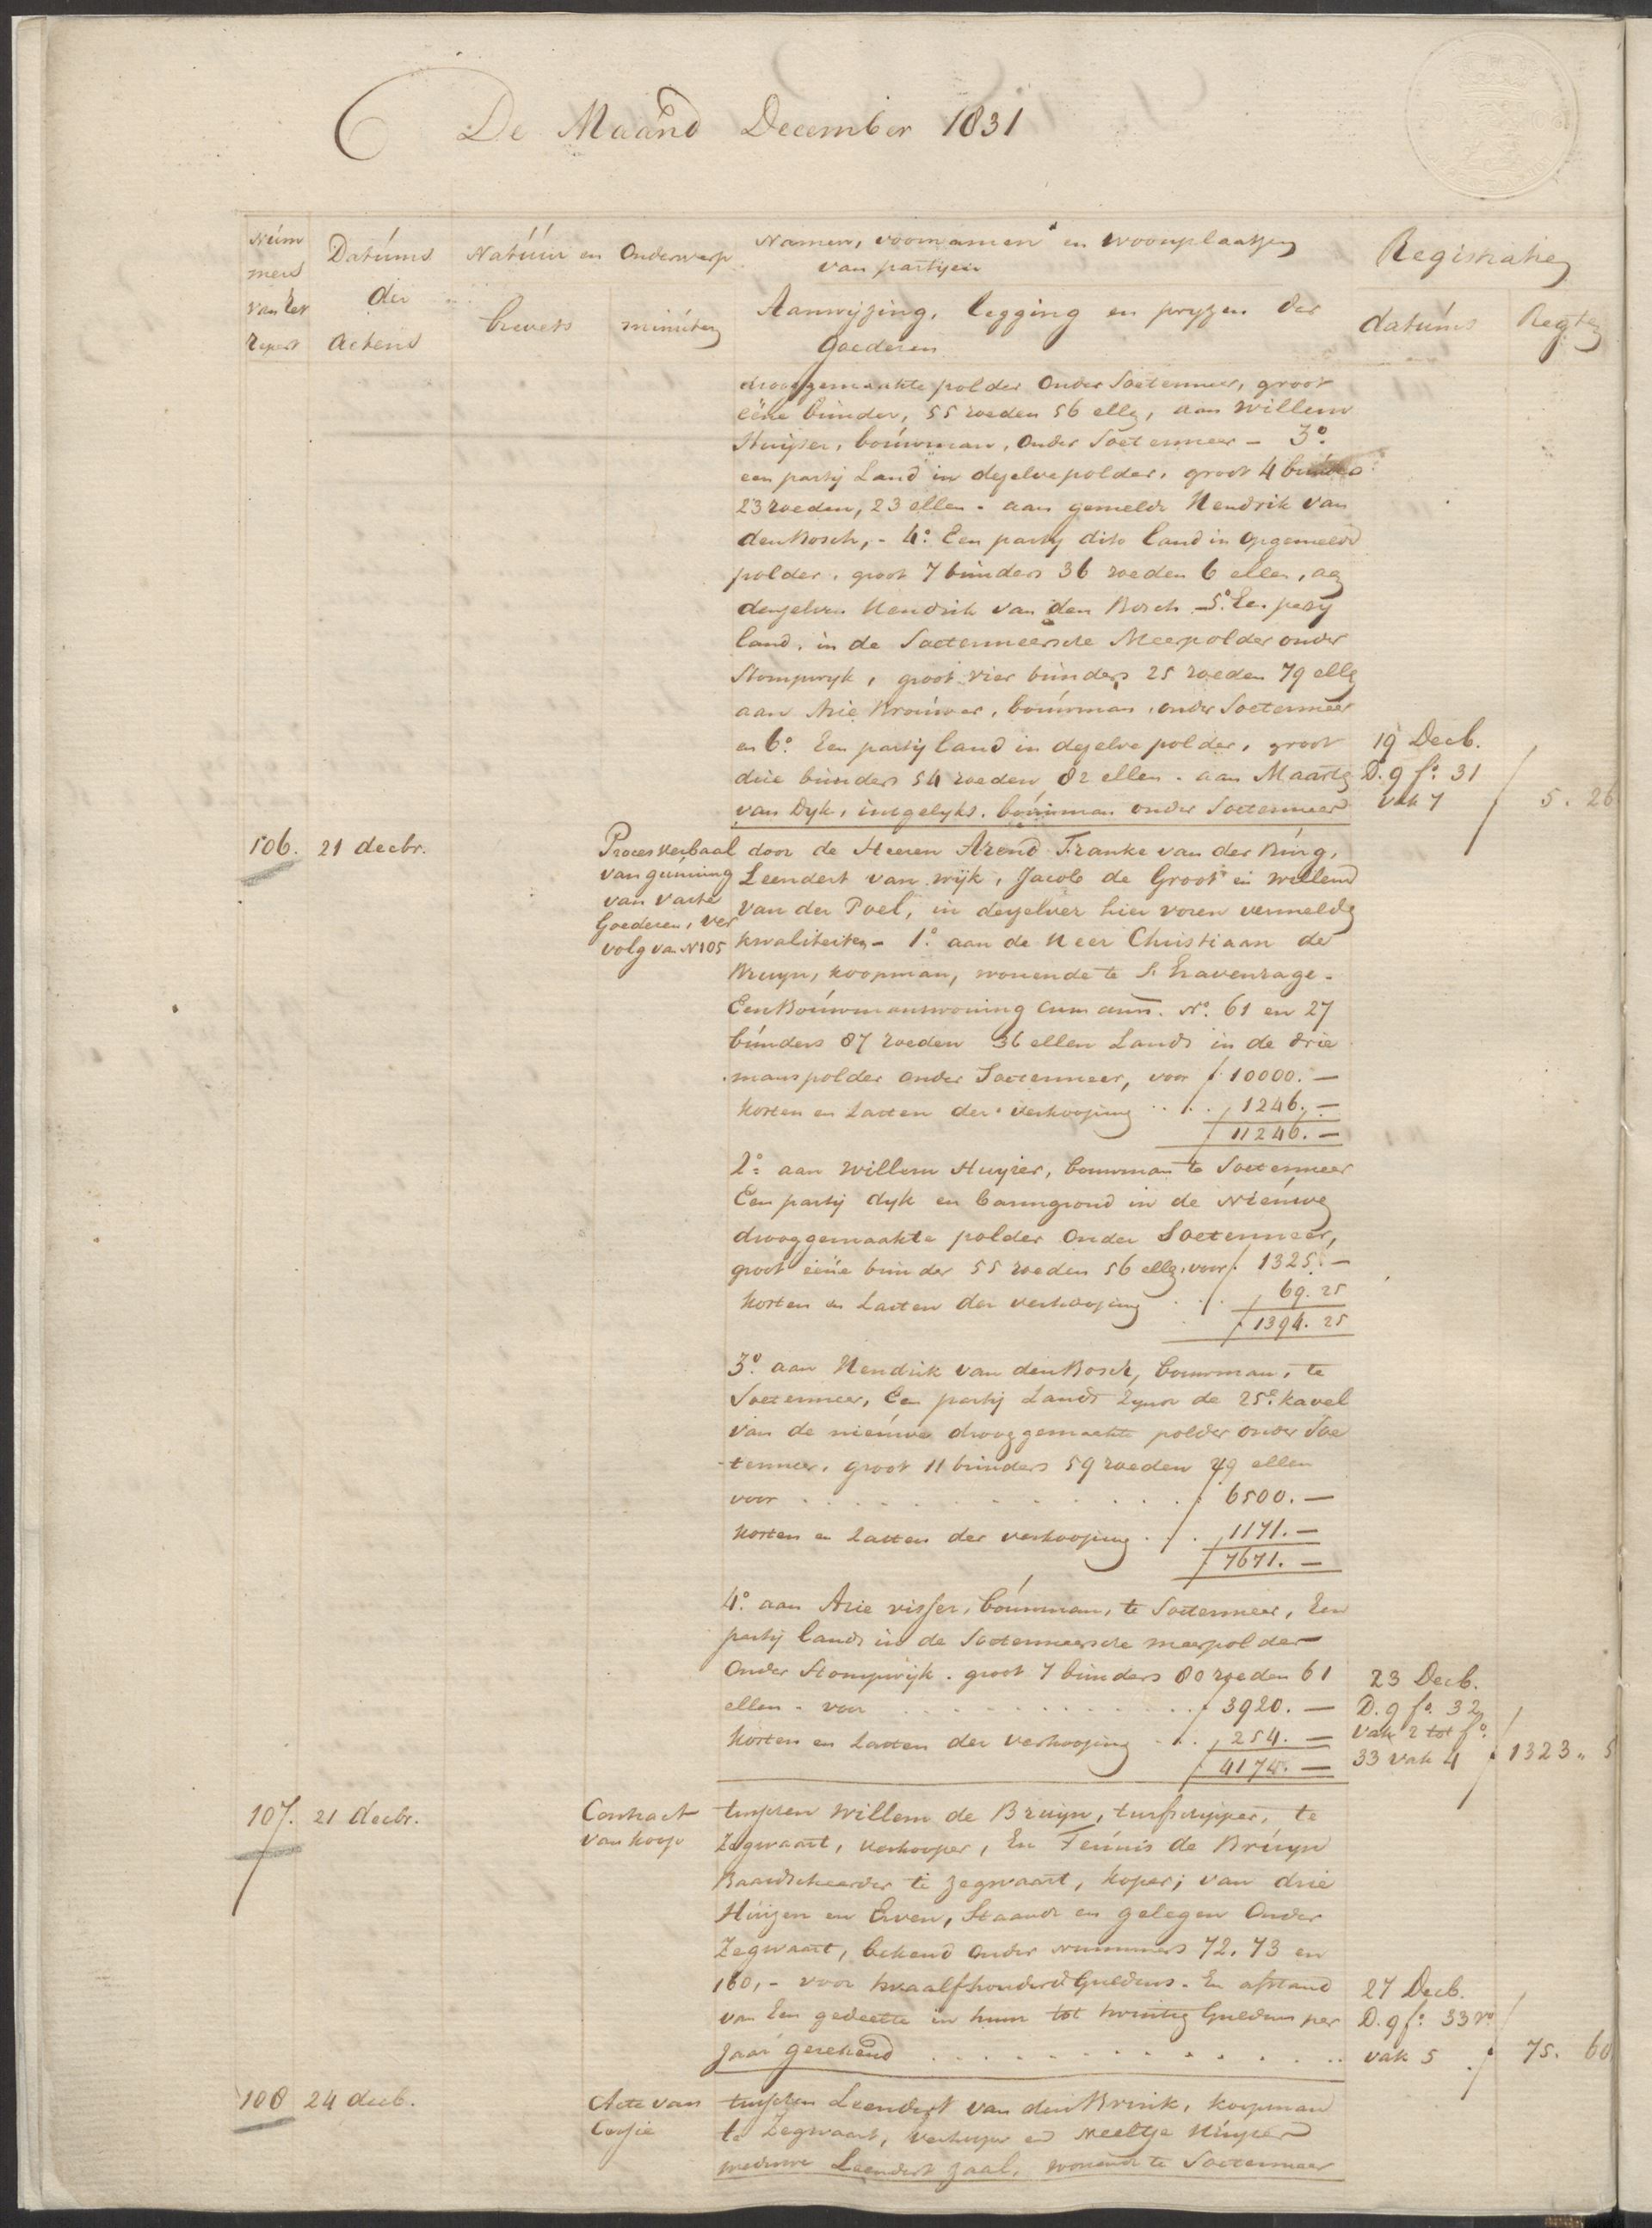 De Maand December 1831
Núm
mers
van het
Repert
Datúms
der
Actens
Natúúr en Onderwerp
brevets
minúten
Namen, voornamen en woonplaatsen
van partijen
Aanwijzing, legging en pryzen der
Goederen
Registratien
datúms
Regten
drooggemaakte polder Onder Soetermeer, groot
eéne búnder, 55 roeden 56 ellen, aan Willem
Huijser, boúwman, Onder Soetermeer - 3º.
een partij Land in dezelve polder, groot 4 búnders
23 roeden, 23 ellen - aan gemelde Hendrik van
den Bosch, - 4º. Een partij dito Land in opgemelde
polder, groot 7 bunders 36 roeden 6 ellen, aan
denzelven Hendrik van den Bosch - 5º. Een partij
land, in de Soetermeersche Meerpolder onder
Stompwyk, groot vier bunders 25 roeden 79 ellen
aan Arie Broúwer, boúwman, onder Soetermeer
en 6º. Een partij land in dezelve polder, groot
drie bunders 54 roeden 82 ellen - aan Maarten
van Dyk, insgelyks, boúwman onder Soetermeer
19 Decb.
D. 9 fº. 31
vak 7
5. 26
106. 21 decbr.
Proces verbaal
van gunning
van vaste
Goederen, ver
volg van N 105
door de Heeren Arend Franke van der Búrg,
Leendert van Wijk, Jacob de Groot en Willem
van der Poel, in derzelver hier voren vermelde
kwaliteiten - 1º. aan de Heer Christiaan de
Bruyn, koopman, wonende te S. Gravenhage -
Een Boúwmanswoning cum ann. Nº. 61 en 27
búnders 87 roeden 36 ellen Lands in de drie
manspolder onder Soetermeer, voor f 10000. —
Kosten en Lasten der verkooping . . f . 1246. —
f 11246. —
2º. aan Willem Huyser, bouwman te Soetermeer
Een partij dyk en barmgrond in de Nieúwe
drooggemaakte polder Onder Soetermeer,
groot eéne bunder 55 roeden 56 ellen, voor f. 1325. —
Kosten en Lasten der verkooping . f. 69. 25
f 1394. 25
3º. aan Hendrik van den Bosch, bouwman, te
Soetermeer, Een partij Lands zynde de 25e. kavel
van de nieúwe drooggemaakte polder onder Soe
termeer, groot 11 bunders 59 roeden 49 ellen
voor . . . . . . . . . . f 6500. —
Kosten en Lasten der verkooping . f . 1171. —
f 7671. —
4º. aan Arie Visser, boúwman, te Soetermeer, Een
partij Lands in de Soetermeersche meerpolder
Onder Stompwijk - groot 7 bunders 80 roeden 61
ellen - voor . . . . . . . . f 3920. —
Kosten en Lasten der verkooping . f . 254. —
f 4174. —
23 Decb.
D. 9 fº. 32
vak 2 tot fº.
33 vak 4
f 1323 " 5
107. 21 decbr.
Contract
van koop
tusschen Willem de Bruyn, turfschipper, te
Zegwaart, verkooper, En Teúnis de Brúyn
Baardscheerder te Zegwaart, koper; van drie
Húizen en Erven, Staande en gelegen Onder
Zegwaart, bekend Onder nummers 72. 73 en
160, - voor twaalfhonderd Guldens - En afstand
van Een gedeelte in huur tot twintig Guldens per
Jaar gerekend . . . . . . . . . .
27 Decb.
D. 9 fº. 33 vº
vak 5
f 75. 60
108 24 decb.
Acte van
Cessie
tusschen Leendert van den Brink, koopman
te Zegwaart, verkooper en Neeltje Húyser
weduwe Leendert Zaal, wonende te Soetermeer